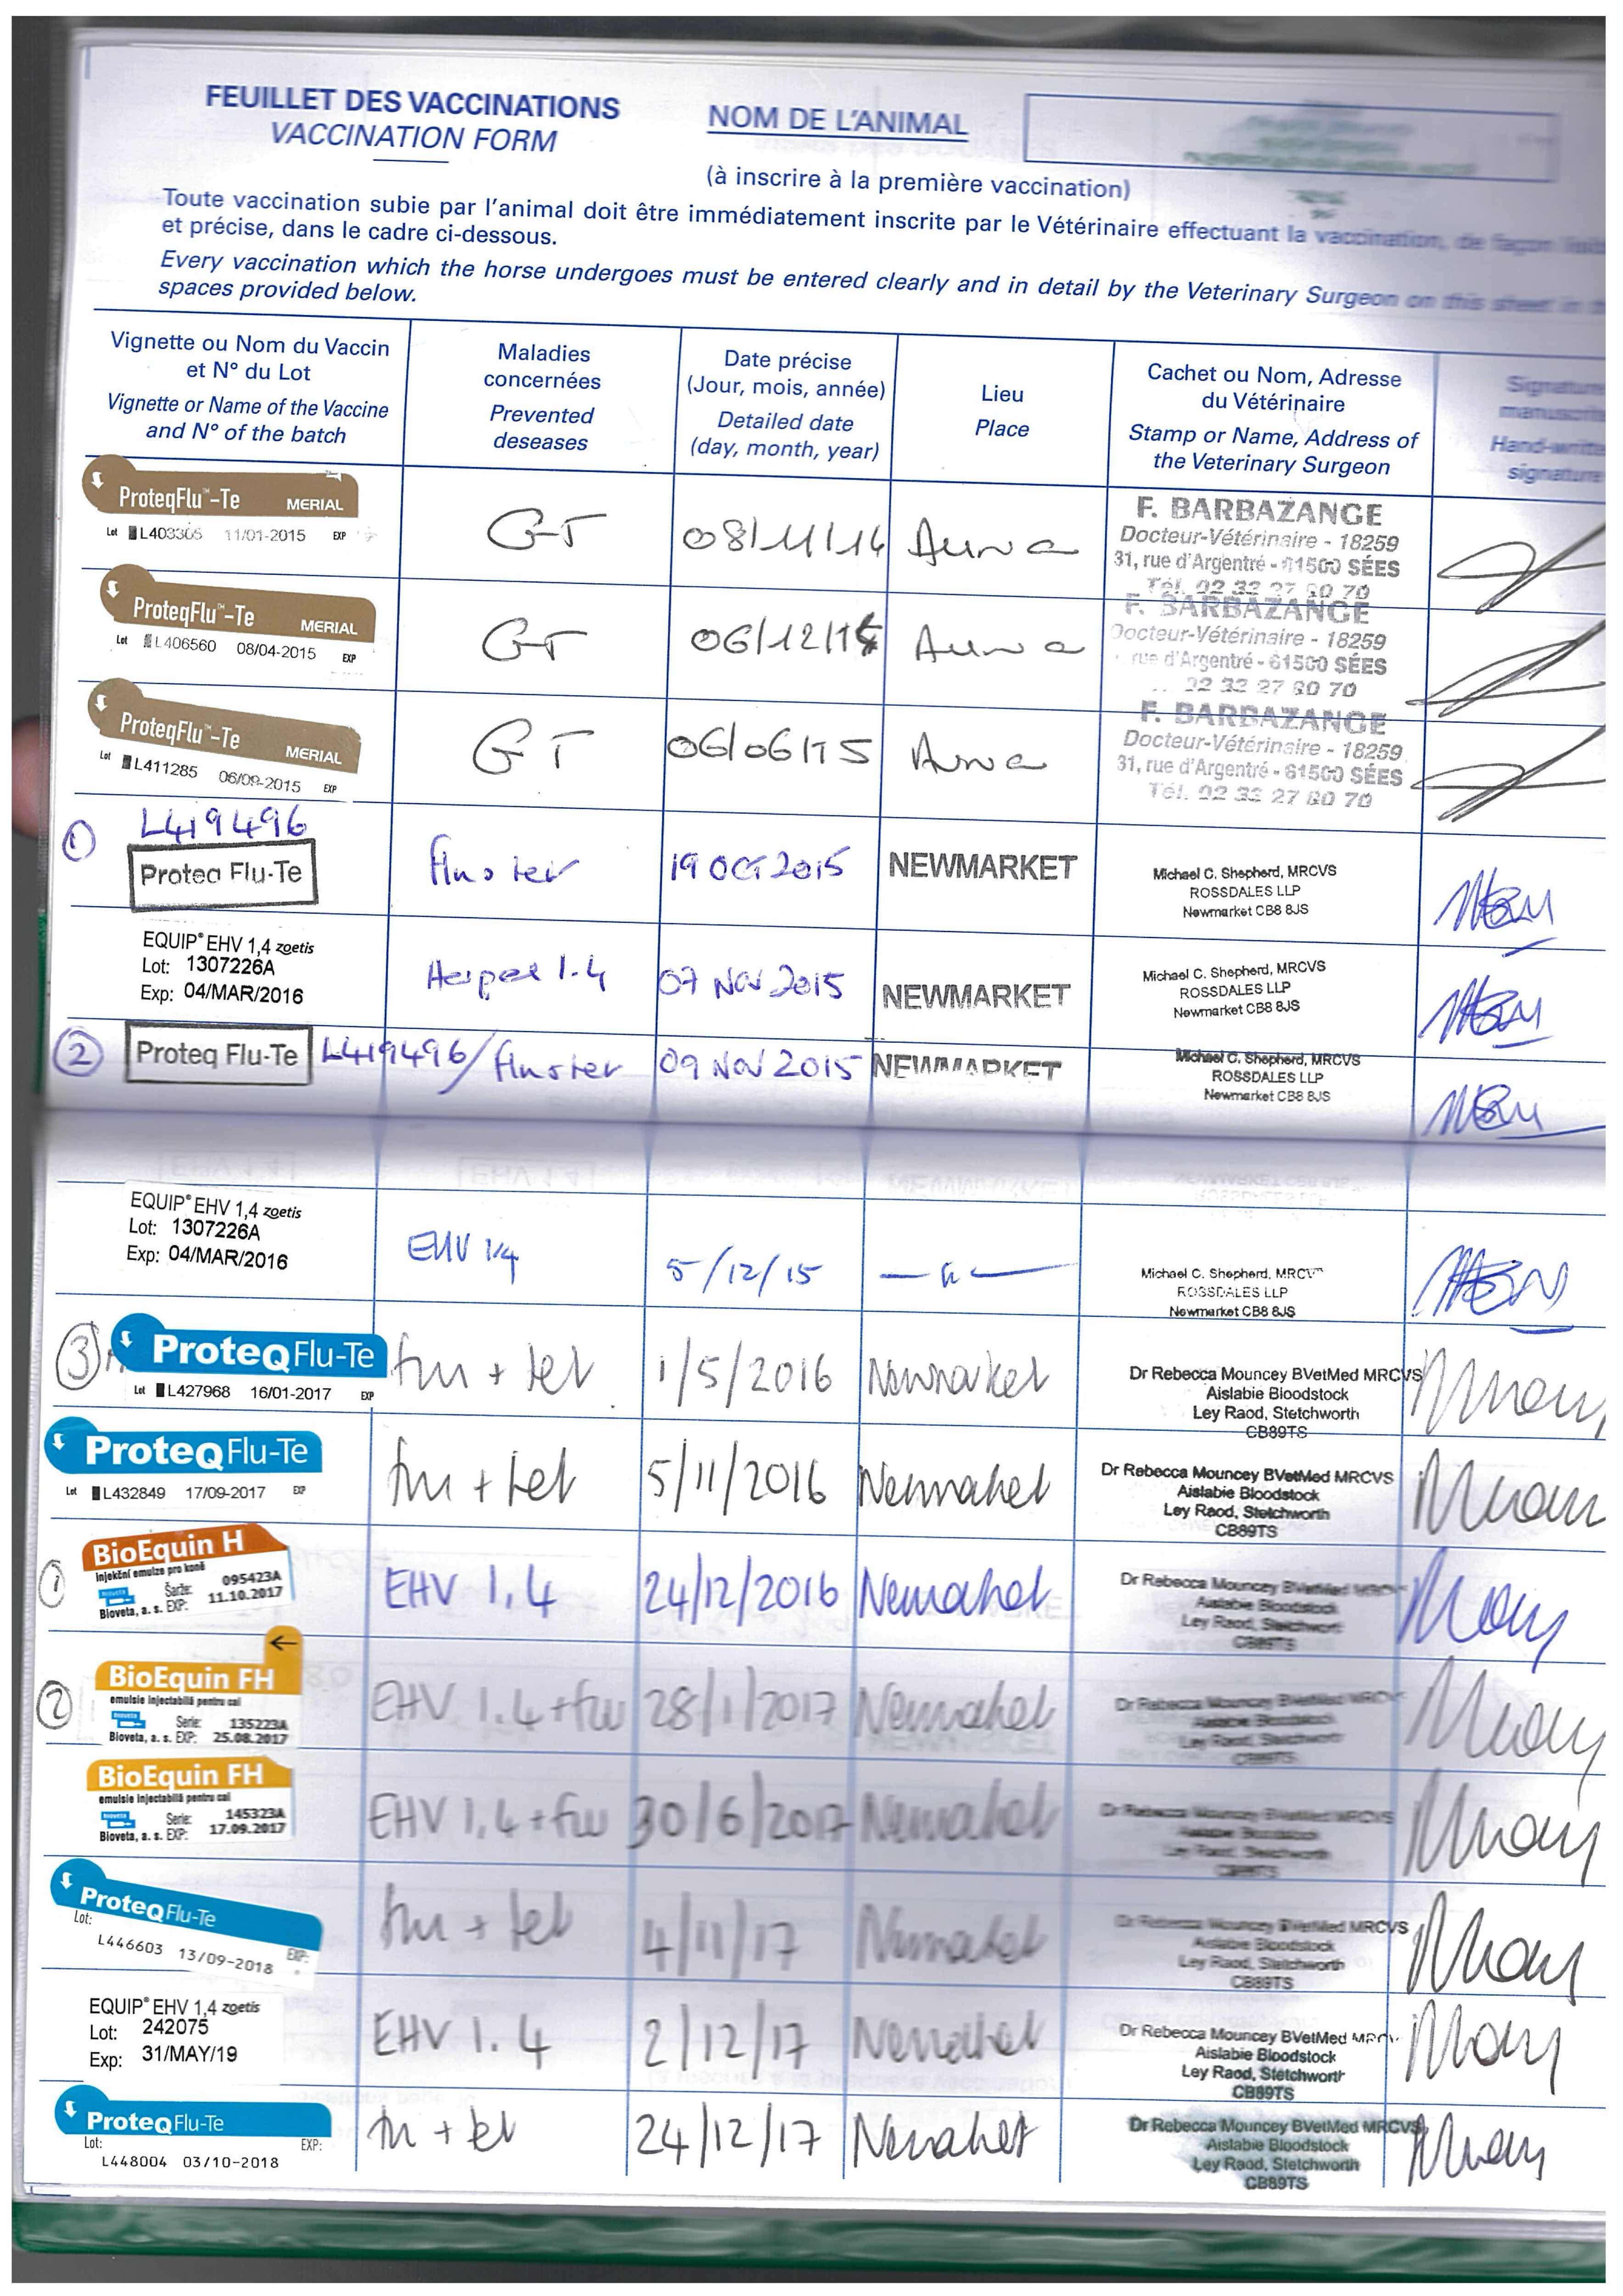 FEUILLET DES VACCINATIONS
VACCINATION FORM
NOM DE L'ANIMAL
(à inscrire à la première vaccination)
Toute vaccination subie par l'animal doit être immédiatement inscrite par le Vétérinaire effectuant la vaccination, de façon
et précise, dans le cadre ci-dessous.
Every vaccination which the horse undergoes must be entered clearly and in detail by the Veterinary Surgeon on this sheet in
spaces provided below.
Vignette ou Nom du Vaccin
et N° du Lot
Vignette or Name of the Vaccine
and N° of the batch
Maladies
concernées
Prevented
deseases
Date précise
(Jour, mois, année)
Detailed date
(day, month, year)
Lieu
Place
Cachet ou Nom, Adresse
du Vétérinaire
Stamp or Name, Address of
the Veterinary Surgeon
Signature
manuscrite
Hand-written
signature
ProteqFlu™-Te MERIAL
Lot L403305 11/01-2015 EXP
GT
08/11/14
F. BARBAZANGE
Docteur-Vétérinaire - 18259
31, rue d'Argentré - 61500 SÉES
Tél. 02 33 27 80 70
ProteqFlu™-Te MERIAL
Lot L406560 08/04-2015 EXP
GT
06/12/14
F. BARBAZANGE
Docteur-Vétérinaire - 18259
rue d'Argentré - 61500 SÉES
02 33 27 80 70
ProteqFlu™-Te MERIAL
Lot L411285 06/09-2015 EXP
GT
06/06/15
F. BARBAZANGE
Docteur-Vétérinaire - 18259
31, rue d'Argentré - 61500 SÉES
Tél. 02 33 27 80 70
① L419496
Proteq Flu-Te
19 OCT 2015
NEWMARKET
Michael C. Shepherd, MRCVS
ROSSDALES LLP
Newmarket CB8 8JS
EQUIP® EHV 1,4 zoetis
Lot: 1307226A
Exp: 04/MAR/2016
1.4
07 NOV 2015
NEWMARKET
Michael C. Shepherd, MRCVS
ROSSDALES LLP
Newmarket CB8 8JS
② Proteq Flu-Te L419496/
09 NOV 2015
NEWMARKET
Michael C. Shepherd, MRCVS
ROSSDALES LLP
Newmarket CB8 8JS
EQUIP® EHV 1,4 zoetis
Lot: 1307226A
Exp: 04/MAR/2016
EHV 1/4
5/12/15
— " —
Michael C. Shepherd, MRCV
ROSSDALES LLP
Newmarket CB8 8JS
③ ProteQ Flu-Te
Lot L427968 16/01-2017 EXP
flu + tet
1/5/2016
Newmarket
Dr Rebecca Mouncey BVetMed MRCVS
Aislabie Bloodstock
Ley Raod, Stetchworth
CB89TS
ProteQ Flu-Te
Lot L432849 17/09-2017 EXP
flu + tet
5/11/2016
Newmarket
Dr Rebecca Mouncey BVetMed MRCVS
Aislabie Bloodstock
Ley Raod, Stetchworth
CB89TS
① BioEquin H
injekční emulze pro koně
Šarže: 095423A
Bioveta, a. s. EXP: 11.10.2017
EHV 1,4
24/12/2016
Newmarket
Dr Rebecca Mouncey BVetMed MRCV
Aislabie Bloodstock
Ley Raod, Stetchwort
CB89TS
② BioEquin FH
emulsie injectabilă pentru cai
Serie: 135223A
Bioveta, a. s. EXP: 25.08.2017
EHV 1.4 + flu
28/1/2017
Newmarket
Dr Rebecca Mouncey BVetMed MRCV
Aislabie Bloodstock
Ley Raod, Stetchworth
CB89TS
BioEquin FH
emulsie injectabilă pentru cai
Serie: 145323A
Bioveta, a. s. EXP: 17.09.2017
EHV 1,4 + flu
30/6/2017
Newmarket
Dr Rebecca Mouncey BVetMed MRCVS
Aislabie Bloodstock
Ley Raod, Stetchworth
CB89TS
ProteQ Flu-Te
Lot: EXP:
L446603 13/09-2018
flu + tet
4/11/17
Newmarket
Dr Rebecca Mouncey BVetMed MRCVS
Aislabie Bloodstock
Ley Raod, Stetchworth
CB89TS
EQUIP® EHV 1,4 zoetis
Lot: 242075
Exp: 31/MAY/19
EHV 1.4
2/12/17
Newmarket
Dr Rebecca Mouncey BVetMed MRCV
Aislabie Bloodstock
Ley Raod, Stetchworth
CB89TS
ProteQ Flu-Te
Lot: EXP:
L448004 03/10-2018
flu + tet
24/12/17
Newmarket
Dr Rebecca Mouncey BVetMed MRCVS
Aislabie Bloodstock
Ley Raod, Stetchworth
CB89TS